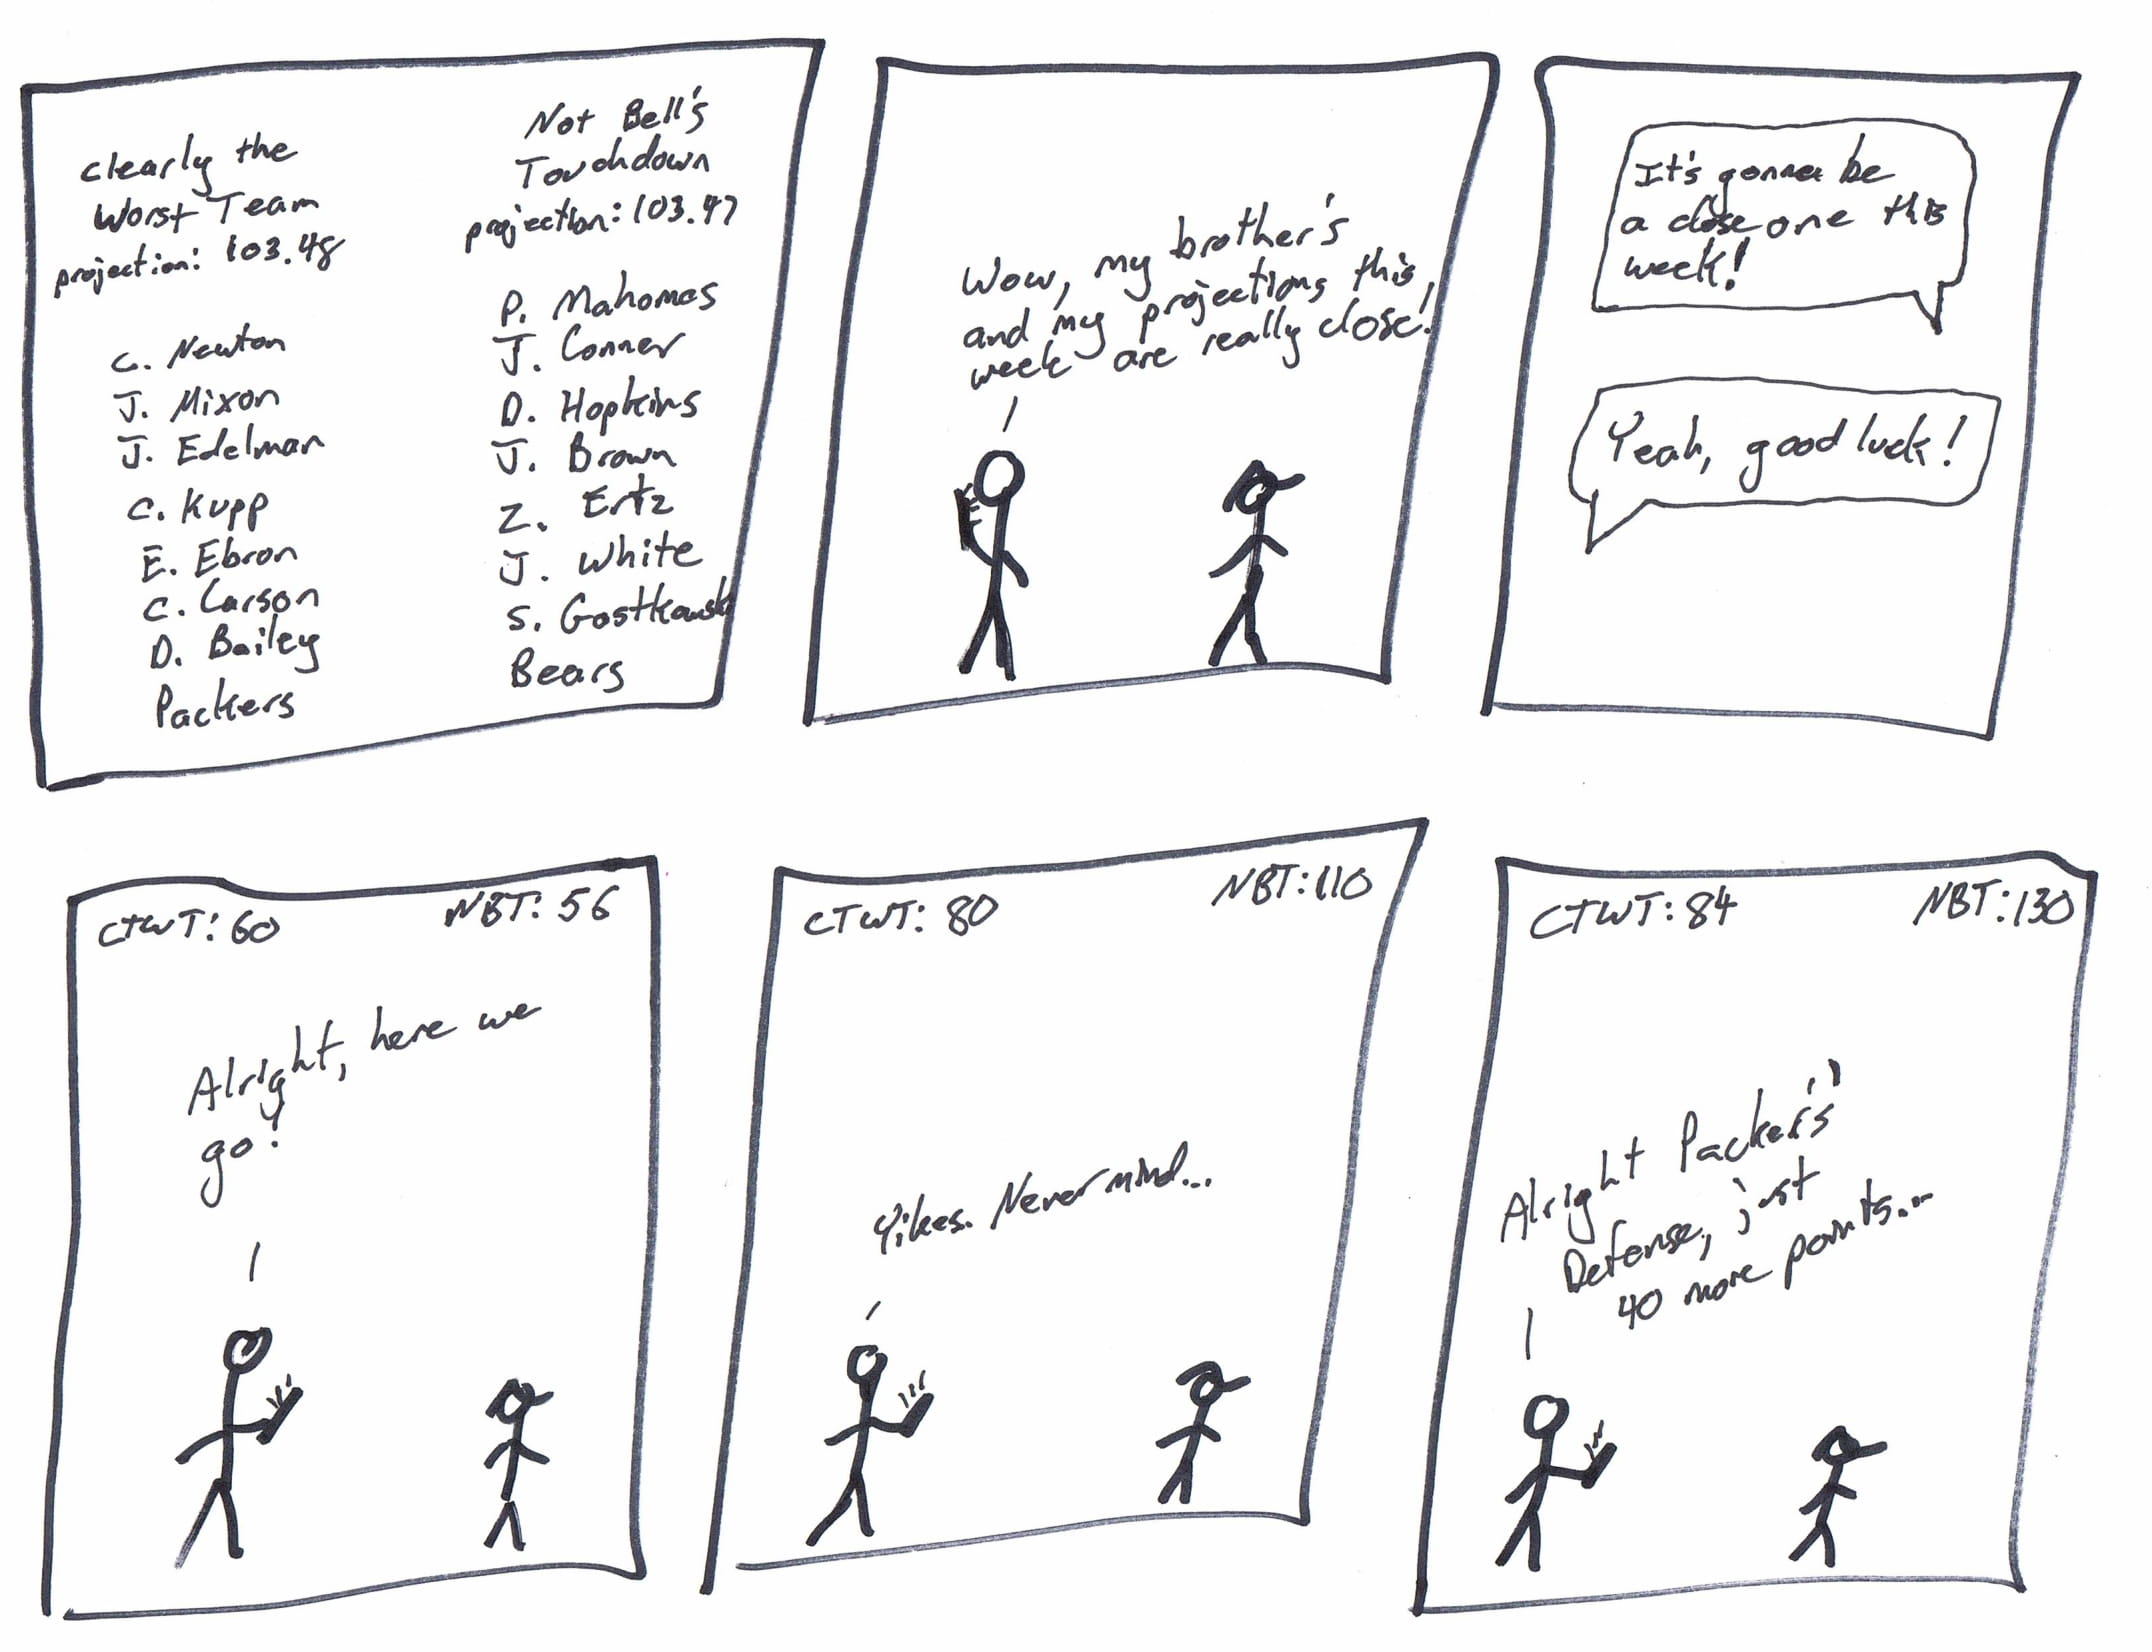 Clearly the
Worst Team
projection: 103.48
C. Newton
J. Mixon
J. Edelman
C. Kupp
E. Ebron
C. Carson
D. Bailey
Packers
Not Bell's
Touchdown
projection: 103.47
P. Mahomes
J. Conner
D. Hopkins
J. Brown
Z. Ertz
J. White
S. Gostkowski
Bears
Wow, my brother's
and my projections this
week are really close!
It's gonna be
a close one this
week!
Yeah, good luck!
CTWT: 60
NBT: 56
Alright, here we
go!
CTWT: 80
NBT: 110
Yikes. Nevermind...
CTWT: 84
NBT: 130
Alright Packer's'
Defense, just
40 more points...